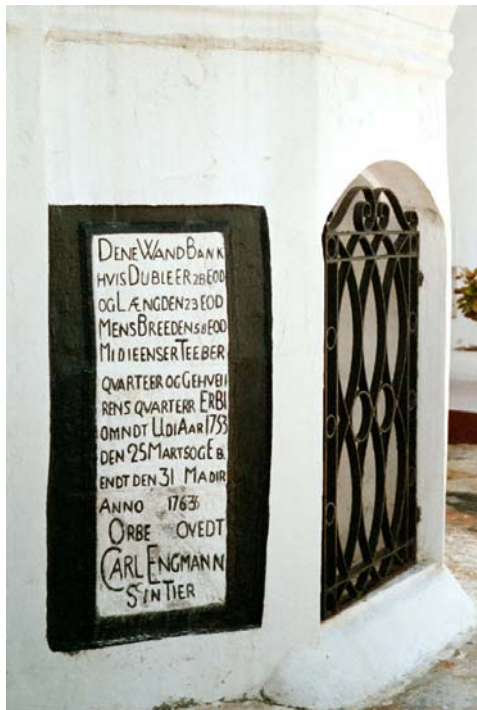 DENE WAND BANK
HVIS DUBLEER 28 EOD
OG LÆNGDEN 23 EOD
MENS BREEDEN 58 EOD
MIDIEENSER TEEBER
QVARTEER OG GEHVEII
RENS QVARTERR ERBI
OMNDT UDI AAR 1753
DEN 25 MARTS OG E B.
ENDT DEN 31 MADIR
ANNO 1763
ORBE OVEDT
CARL ENGMANN
S'IN TIER